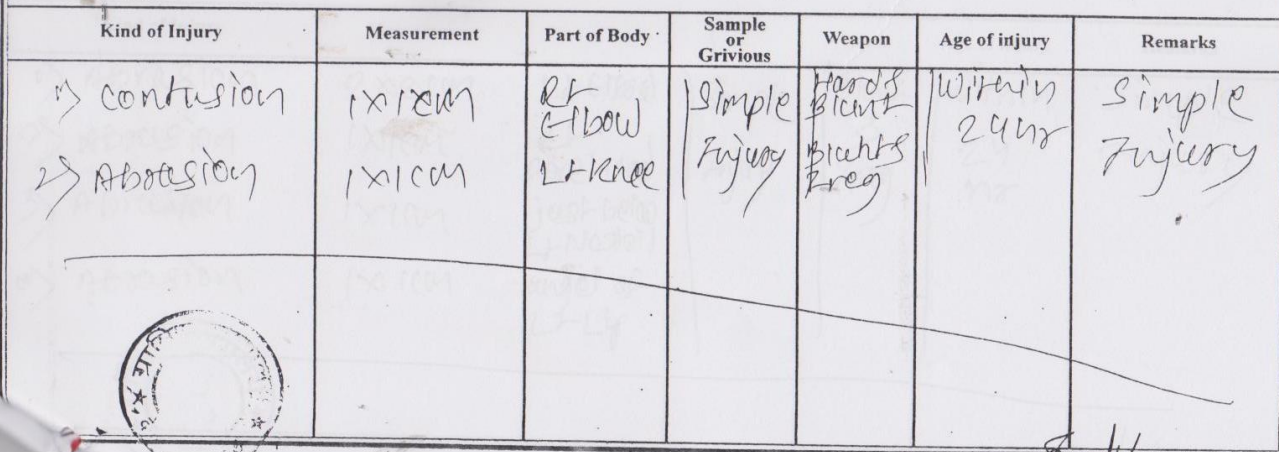 Kind of Injury Measurement Part of Body Sample or Grivious Weapon Age of injury Remarks
1) Contusion 1x1xcm Rt Elbow Simple Injury Hard & Blunt Within 24hr Simple Injury
2) Abrasion 1x1cm Lt Knee Blunt &